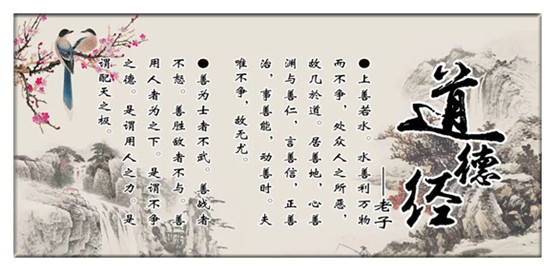 道德经
——老子
●上善若水。水善利万物
而不争，处众人之所恶，
故几於道。居善地，心善
渊与善仁，言善信，正善
治，事善能，动善时。夫
唯不争，故无尤。
●善为士者不武。善战者
不怒。善胜敌者不与。善
用人者为之下。是谓不争
之德。是谓用人之力。是
谓配天之极。